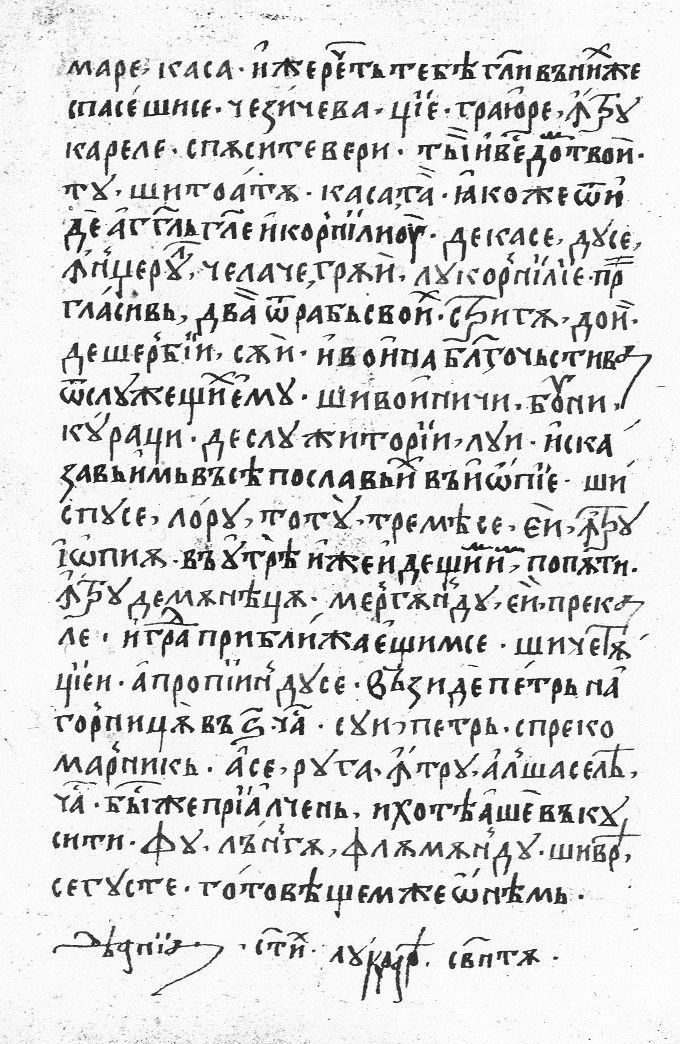 маре, каса · и҆жереть тебѣ гл҃и въни́хже
спасе́шисе · чезичева · ці́е · граю́ре, ѫтру
кареле · спѧсите вери · ты̀ и҆ве́сь до́мь твои ·
ту, шитоа́тѧ · касата̀ · ꙗ҆коже ѿи́
де а҆гг҃ль гл҃е и҆корни́лиоу · декасе, дусе,
ѫ҆нꙉерул, челаче, грѧи, лукорни́лїе · пр
гла́сивь, два̀ ѿ рабь свои́х · стригѧ, дои ·
дешербїи, сѧи · и҆вои́на бл҃гочьстива
ѿслужещи́х е҆му · шивои́ничи, буни,
кура́ци · деслужиторїи, луи · и҆ска
завь и҆мь въсѣ посла вьи҆ въ и҆ѡ҆пїе · ши
спусе, лору, тоту, тремѣсе, е҆и, ѫтру
і҆ѡпиѧ · въ у҆трѣ и҆жеи дещи́мь и҆мь, попѧти ·
ѫтру демѧнѣцѧ · мергѧнду, е҆и, прека
ле · и҆гра приближае́щимсе · шичетѧ
цїеи · а҆пропїиндусе · възиде петрь на̀
горницѫ въ ѕ҃ · ча̀ · суи, петрь · спреко
марникь · а҆се, руга, ѫтру, а҆л шаселѣ,
ча̀ · бы́ же прїа́лчень, и хотѣа́ше въку
сити · фу, лънгѧ, флѧмѧнду · шивр,
сегусте · гото́вѣщем же ѡ҆нѣмь ·
дѣанїа · ст҃и́х · лукрр · свѧнтѧ ·